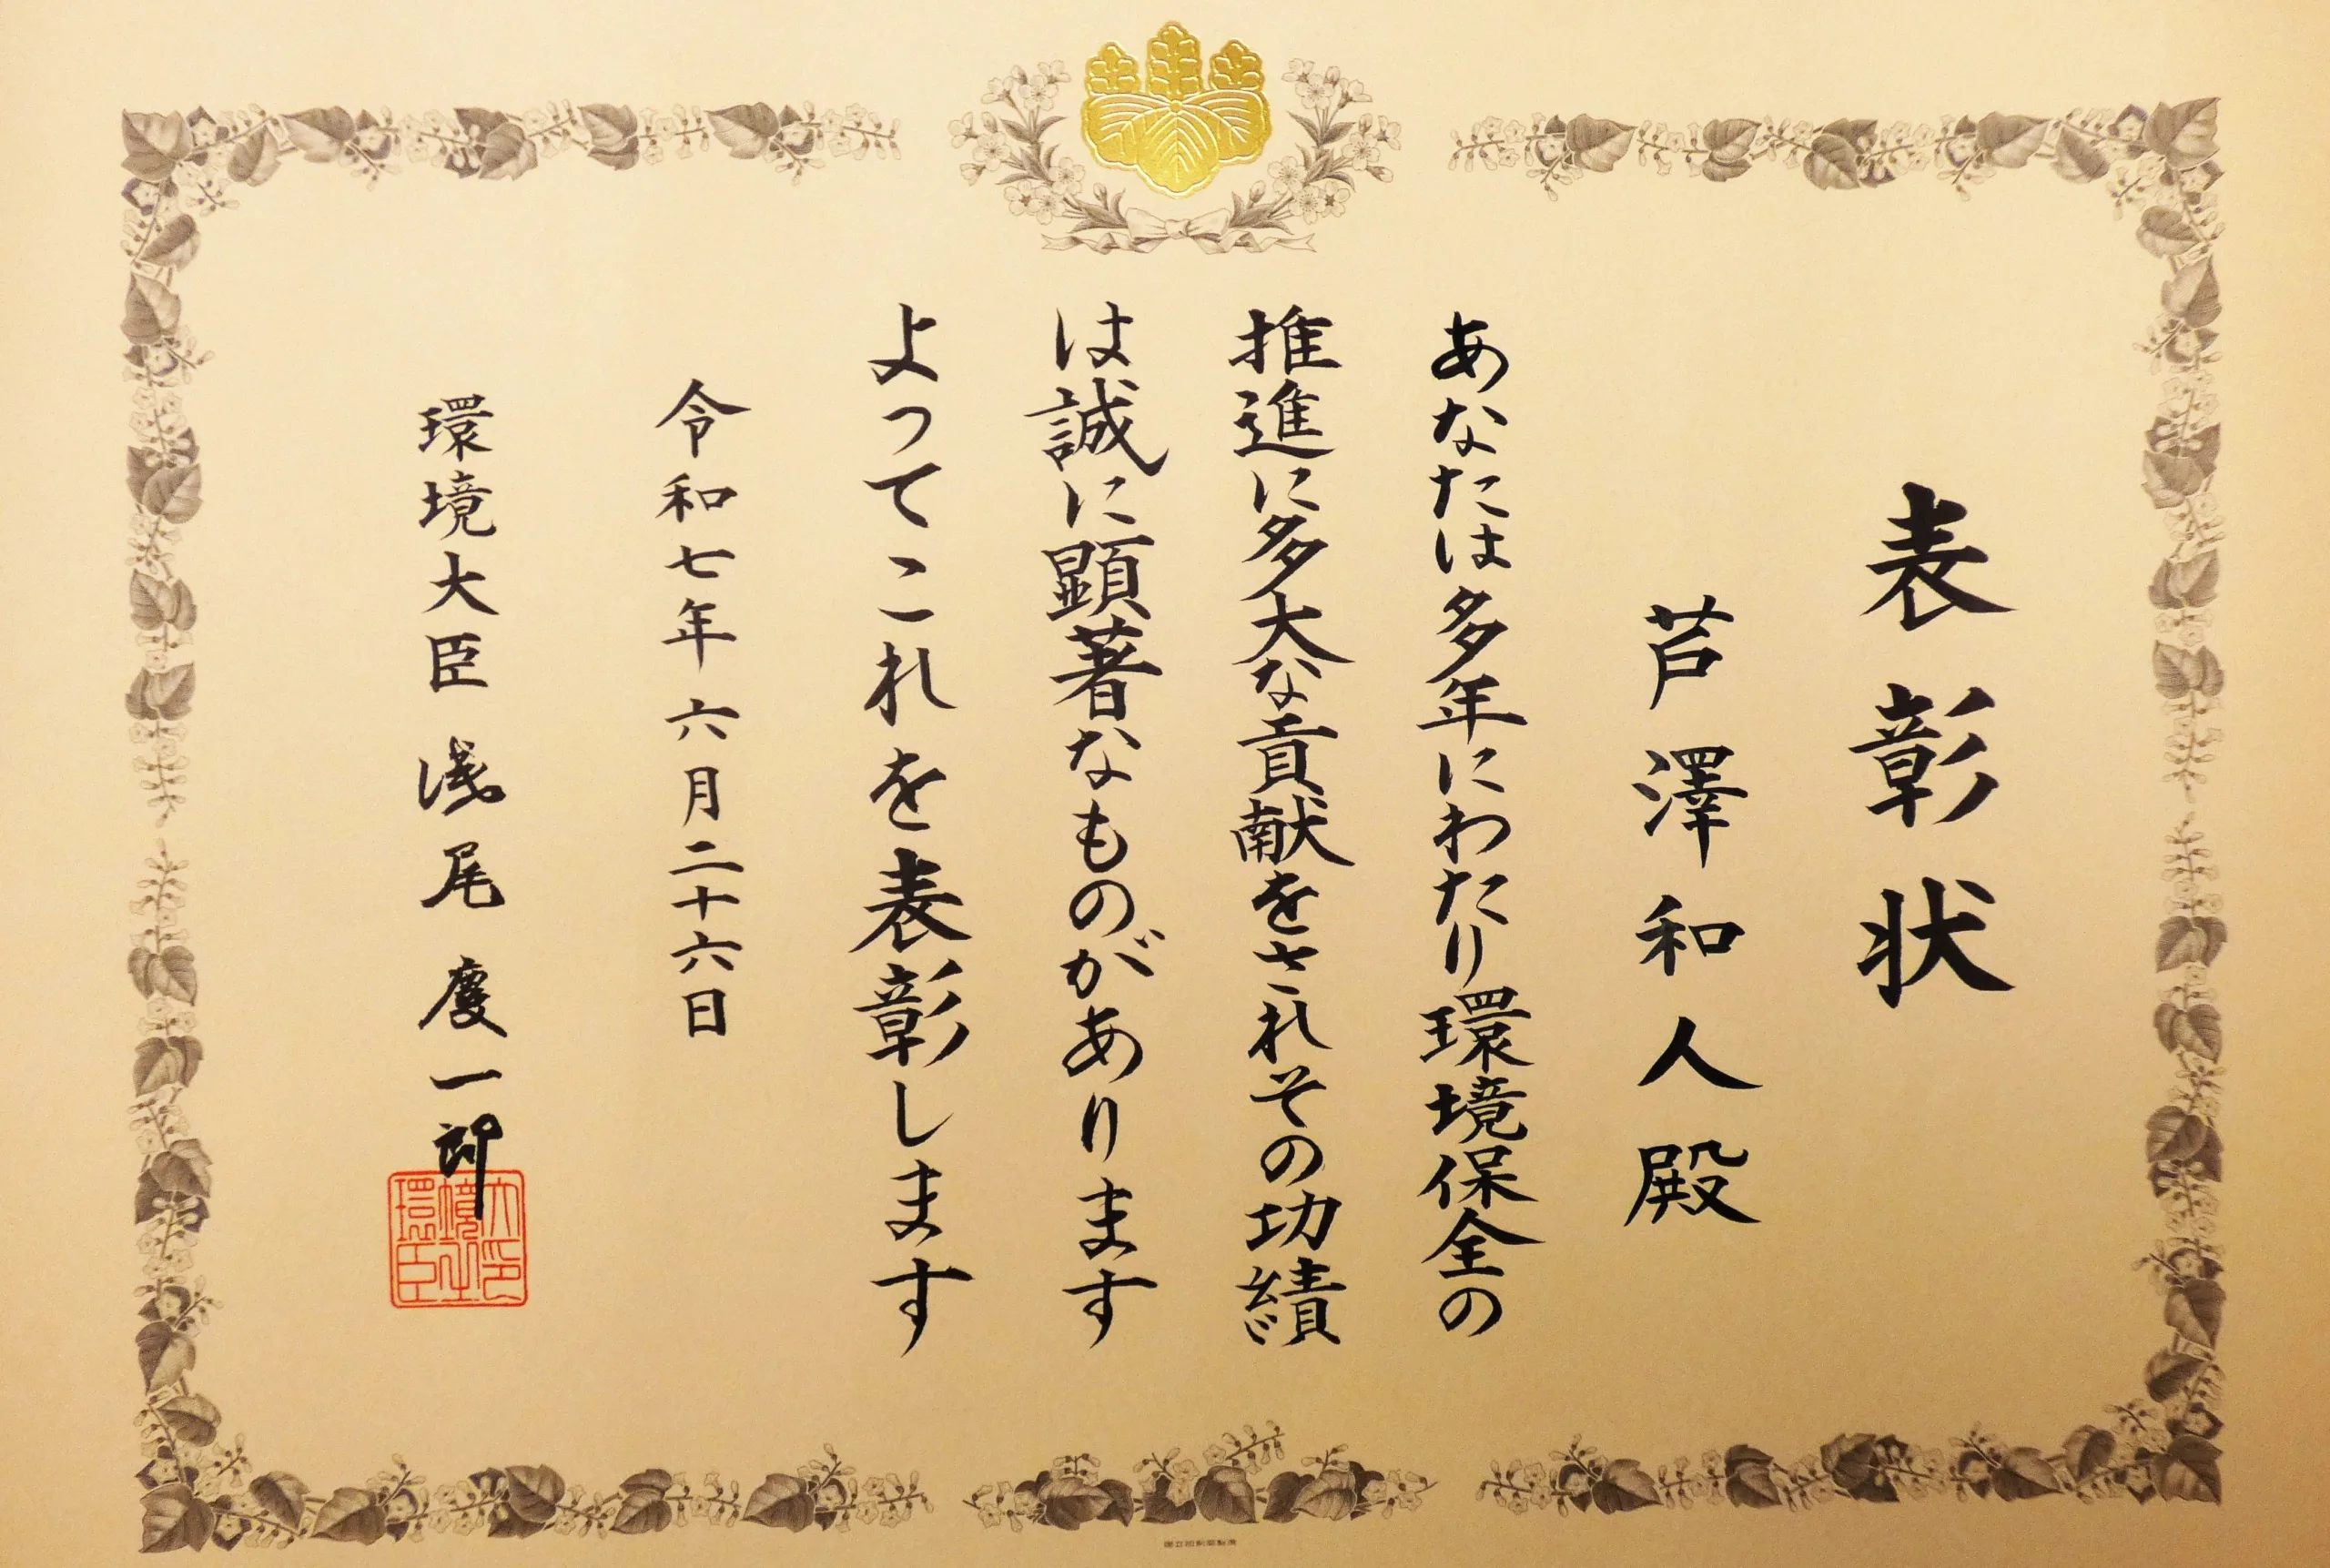 表彰状
芦澤和人殿
あなたは多年にわたり環境保全の
推進に多大な貢献をされその功績
は誠に顕著なものがあります
よってこれを表彰します
令和七年六月二十六日
環境大臣 浅尾慶一郎
環境大臣之印